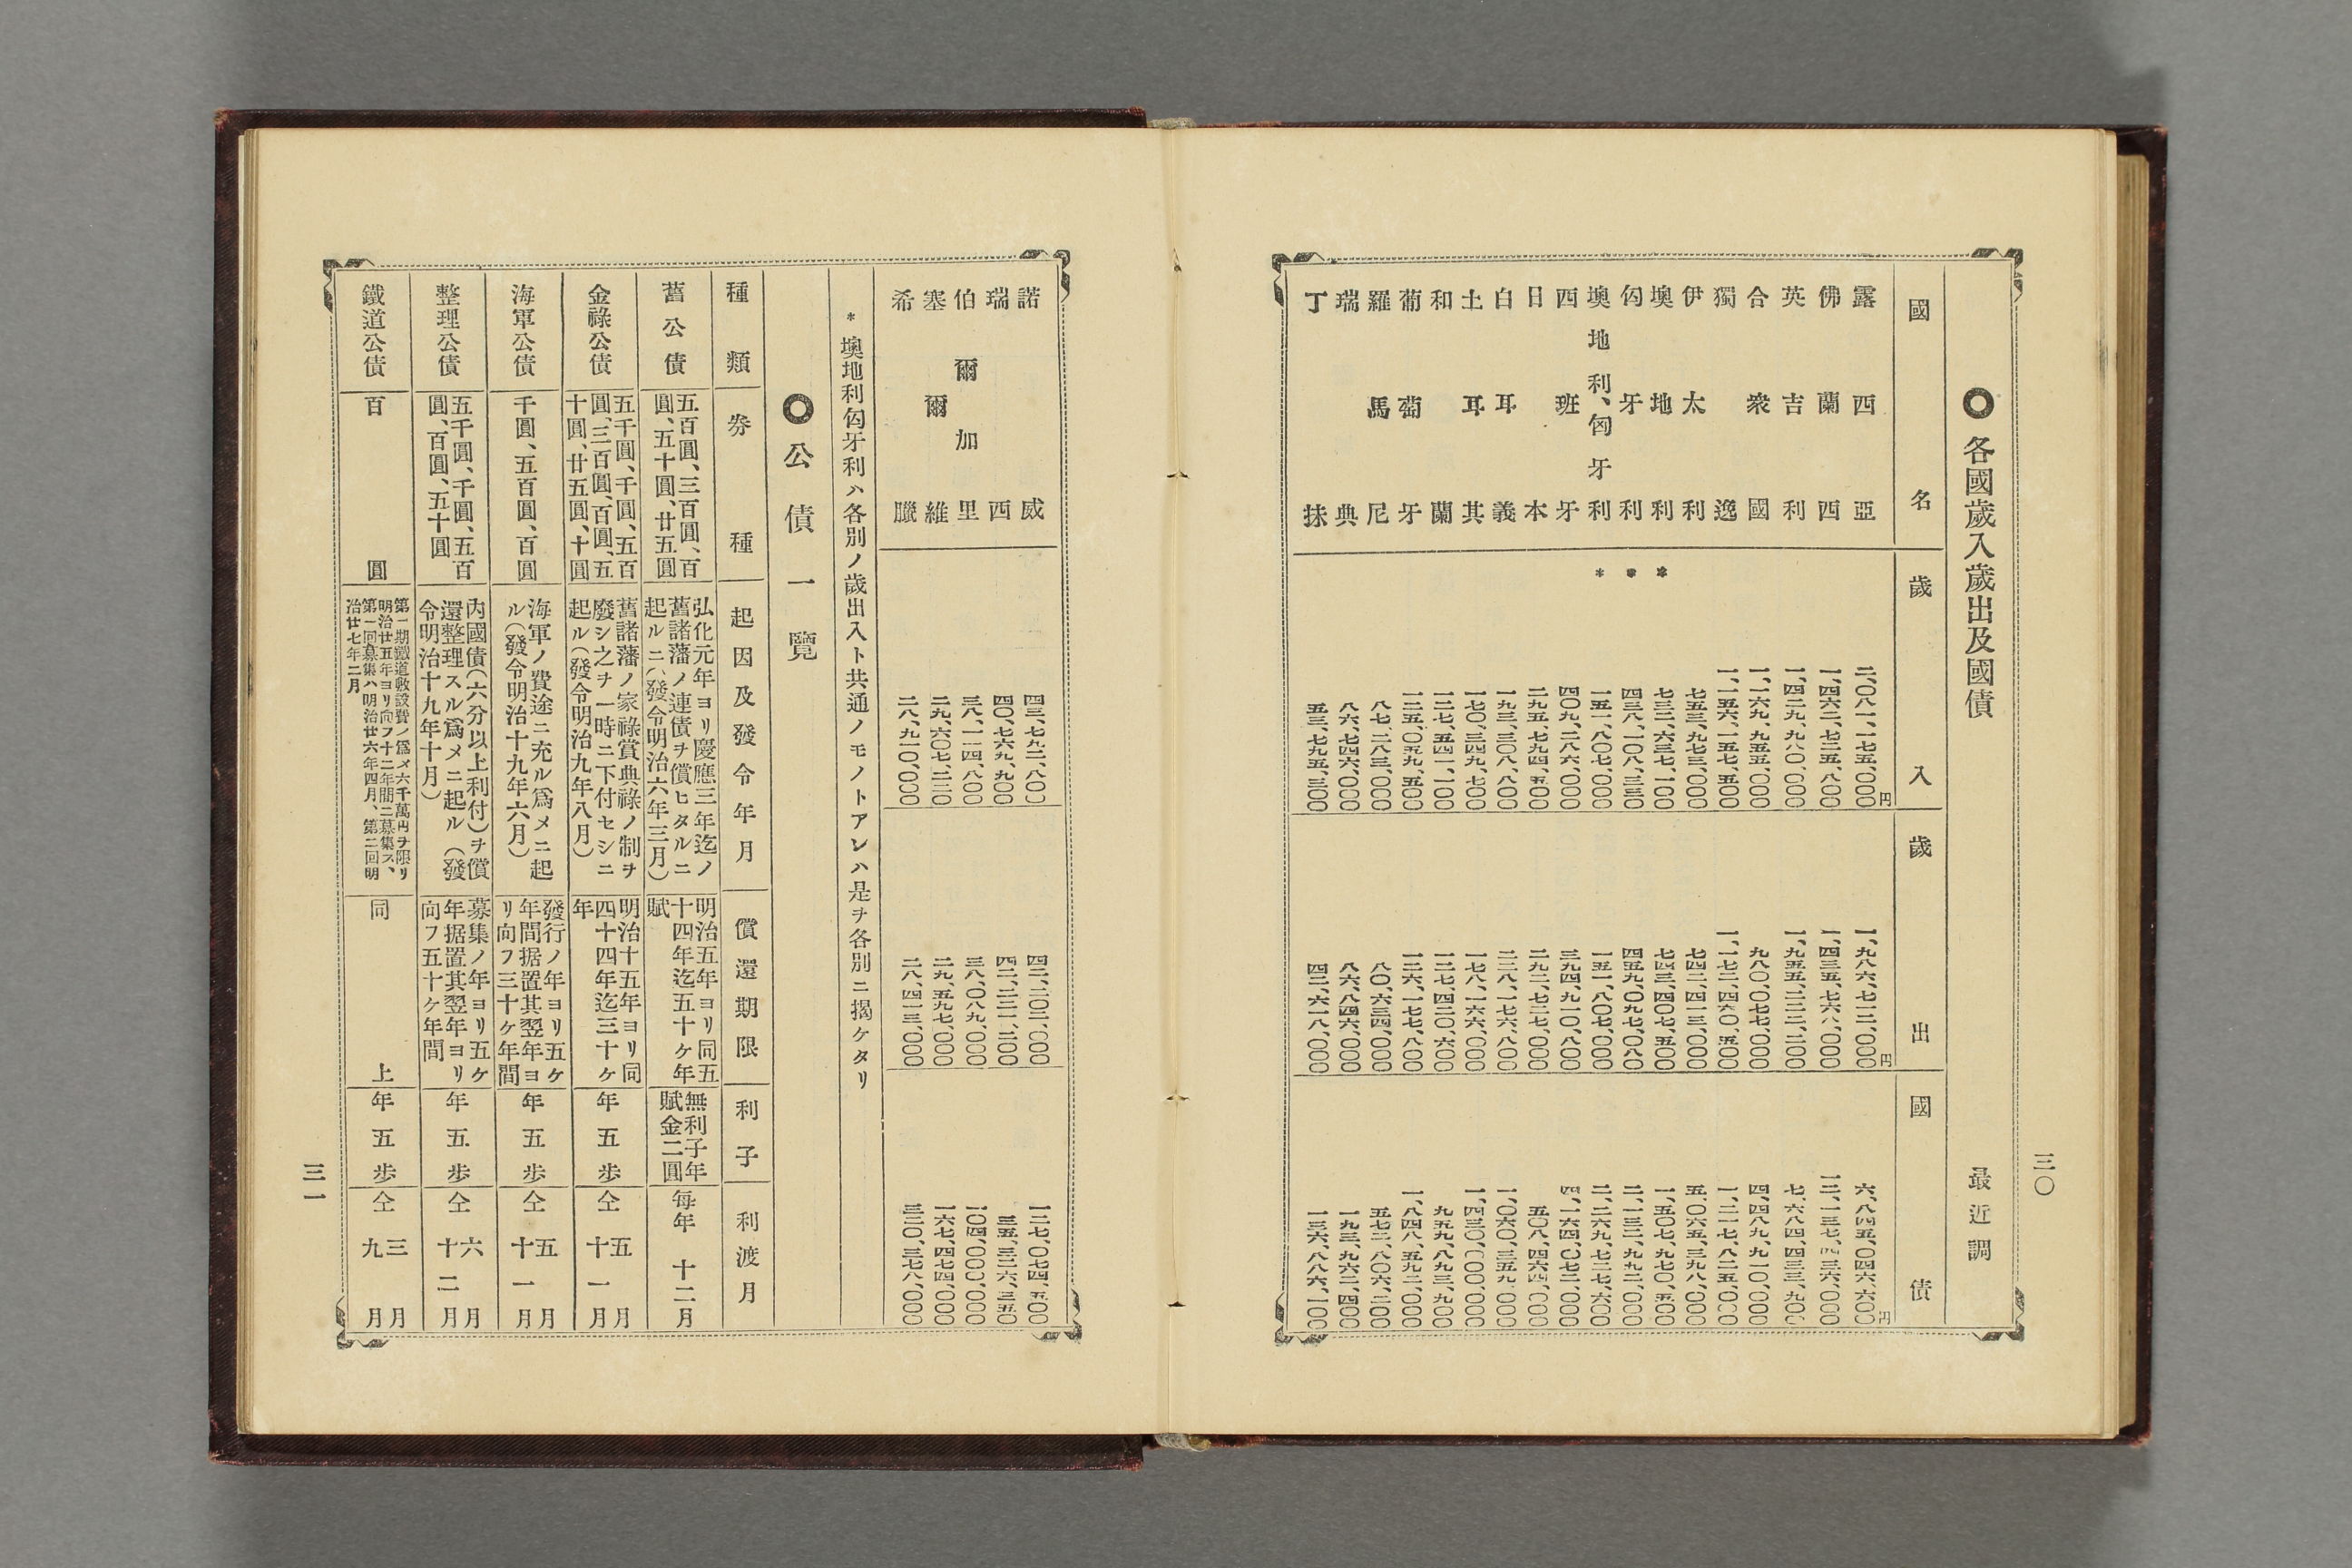 三〇
◎各國歲入歲出及國債 最近調
國名 歲入 歲出 國債
露西亞 二、〇八一、一七五、〇〇〇円 一、九八六、七一二、〇〇〇円 六、八四五、〇四六、六〇〇円
佛蘭西 一、四六二、七二五、八〇〇 一、四三五、七六八、〇〇〇 一二、一三七、四三六、〇〇〇
英吉利 一、四二九、九八〇、〇〇〇 一、九五五、二二二、二〇〇 七、六八四、四三三、九〇〇
合衆國 一、一六九、九五五、〇〇〇 九八〇、〇七七、〇〇〇 四、四八九、九一〇、〇〇〇
獨逸 一、一五六、一五七、五〇〇 一、一七二、四六〇、五〇〇 一、二一七、八二五、〇〇〇
伊太利 七五三、九七三、〇〇〇 七四二、四一三、〇〇〇 五、〇六五、三九八、〇〇〇
墺地利 * 七三二、六三七、一〇〇 七四三、四〇七、五〇〇 一、五〇七、九七〇、五〇〇
匈牙利 * 四三八、一〇八、三三〇 四五九、〇九七、〇八〇 二、一三二、九九二、〇〇〇
墺地利、匈牙利 * 一五一、八〇七、〇〇〇 一五一、八〇七、〇〇〇 二、二六九、七二七、六〇〇
西班牙 四〇九、二八六、〇〇〇 三九四、九一〇、八〇〇 四、一六四、〇七二、〇〇〇
日本 二九五、七九四、五〇〇 二九二、七二七、〇〇〇 五〇八、四六四、〇〇〇
白耳義 一九三、三〇八、八〇〇 二二八、一七六、八〇〇 一、〇六〇、三五九、〇〇〇
土耳其 一七〇、三四九、七〇〇 一七八、一六六、〇〇〇 一、四三〇、〇〇〇、〇〇〇
和蘭 一二七、五四一、一〇〇 一二七、四二〇、六〇〇 九五九、八九三、九〇〇
葡萄牙 一二五、〇五九、五〇〇 一二六、一七七、八〇〇 一、八四八、五九二、〇〇〇
羅馬尼 八七、二八三、〇〇〇 八〇、六三四、〇〇〇 五七二、八〇六、二〇〇
瑞典 八六、七四六、〇〇〇 八六、八四六、〇〇〇 一九三、九六二、四〇〇
丁抹 五三、七九五、三〇〇 四二、六一八、〇〇〇 一三六、八八六、一〇〇
諾威 四三、七九二、八〇〇 四二、二〇二、〇〇〇 一二七、〇七四、五〇〇
瑞西 四〇、七六九、九〇〇 四二、二二一、二〇〇 三五、三二六、三五〇
伯爾加里 三八、一一四、八〇〇 三八、〇八九、〇〇〇 一〇四、〇〇〇、〇〇〇
塞爾維 二九、六〇七、二二〇 二九、五九七、〇〇〇 一六七、四七四、〇〇〇
希臘 二八、九一〇、〇〇〇 二八、四一三、〇〇〇 三二〇、三七八、〇〇〇
* 墺地利匈牙利ハ各別ノ歲出入ト共通ノモノトアレハ是ヲ各別ニ揭ケタリ
◎公債一覽
種類 券種 起因及發令年月 償還期限 利子 利渡月
舊公債
五百圓、三百圓、百
圓、五十圓、廿五圓
弘化元年ヨリ慶應三年迄ノ
舊諸藩ノ連債ヲ償ヒタルニ
起ルニ(發令明治六年三月)
明治五年ヨリ同五
十四年迄五十ケ年
賦
無利子年
賦金二圓
每年 十二月
金祿公債
五千圓、千圓、五百
圓、三百圓、百圓、五
十圓、廿五圓、十圓
舊諸藩ノ家祿賞典祿ノ制ヲ
廢シ之ヲ一時ニ下付セシニ
起ル(發令明治九年八月)
明治十五年ヨリ同
四十四年迄三十ケ
年
年五步
仝 五月
十一月
海軍公債
千圓、五百圓、百圓
海軍ノ費途ニ充ル爲メニ起
ル(發令明治十九年六月)
發行ノ年ヨリ五ケ
年間据置其翌年ヨ
リ向フ三十ケ年間
年五步
仝 五月
十一月
整理公債
五千圓、千圓、五百
圓、百圓、五十圓
內國債(六分以上利付)ヲ償
還整理スル爲メニ起ル(發
令明治十九年十月)
募集ノ年ヨリ五ケ
年据置其翌年ヨリ
向フ五十ケ年間
年五步
仝 六月
十二月
鐵道公債
百圓
第一期鐵道敷設費ノ爲メ六千萬円ヲ限リ
明治廿五年ヨリ向フ十二年間ニ募集ス、
第一回募集ハ明治廿六年四月、第二回明
治廿七年二月
同上
年五步
仝 三月
九月
三一